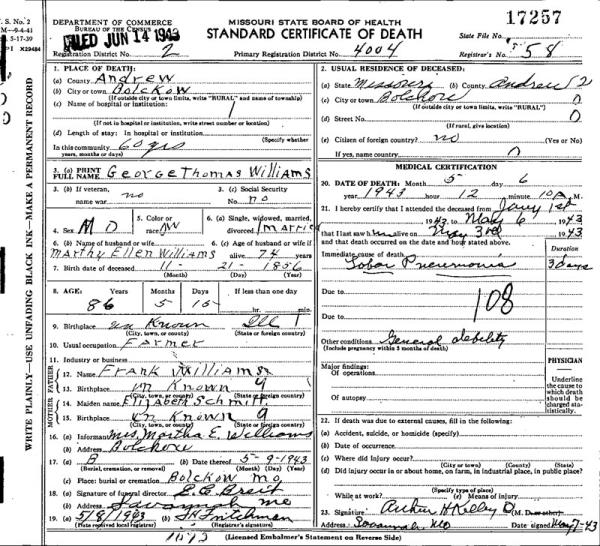 17257
U. S. No. 2
M—9-4-41
5-17-39
X29484
DEPARTMENT OF COMMERCE
BUREAU OF THE CENSUS
MISSOURI STATE BOARD OF HEALTH
STANDARD CERTIFICATE OF DEATH
FILED JUN 14 1943
State File No.
Registration District No. 2
Primary Registration District No. 4004
Registrar's No. 58
WRITE PLAINLY—USE UNFADING BLACK INK—MAKE A PERMANENT RECORD
1. PLACE OF DEATH:
(a) County Andrew
(b) City or town Bolckow
(If outside city or town limits, write "RURAL" and name of township)
(c) Name of hospital or institution:
(If not in hospital or institution, write street number or location)
(d) Length of stay: In hospital or institution
(Specify whether
In this community 60 yrs
years, months or days)
3. (a) PRINT FULL NAME George Thomas Williams
3. (b) If veteran, name war no
3. (c) Social Security No. no
4. Sex M
5. Color or race W
6. (a) Single, widowed, married, divorced Married
6. (b) Name of husband or wife Marthy Ellen Williams
6. (c) Age of husband or wife if alive 74 years
7. Birth date of deceased 11- 21- 1856
(Month) (Day) (Year)
8. AGE: Years Months Days If less than one day
86 5 15 hr. min.
9. Birthplace un Known Ill
(City, town, or county) (State or foreign country)
10. Usual occupation Farmer
11. Industry or business
FATHER
12. Name Frank Williams
13. Birthplace un Known 9
(City, town, or county) (State or foreign country)
MOTHER
14. Maiden name Elizabeth Schmitt
15. Birthplace un Known 9
(City, town, or county) (State or foreign country)
16. (a) Informant Mrs. Martha E. Williams
(b) Address Bolckow
17. (a) B (b) Date thereof 5-9-1943
(Burial, cremation, or removal) (Month) (Day) (Year)
(c) Place: burial or cremation Bolckow Mo
18. (a) Signature of funeral director E. C. Breit
(b) Address Savannah Mo
19. (a) 5/8/1943 (b)
(Date received local registrar) (Registrar's signature)
2. USUAL RESIDENCE OF DECEASED:
(a) State Missouri (b) County Andrew 2
(c) City or town Bolckow 0
(If outside city or town limits, write "RURAL")
(d) Street No. 0
(If rural, give location)
(e) Citizen of foreign country? no (Yes or No)
If yes, name country 0
MEDICAL CERTIFICATION
20. DATE OF DEATH: Month 5 day 6
year 1943 hour 12 minute 10 A M.
21. I hereby certify that I attended the deceased from Jany 1st
1943 to May 6 1943
that I last saw him alive on May 3rd 1943
and that death occurred on the date and hour stated above.
Duration
Immediate cause of death
Lobar Pneumonia 3 days
Due to
108
Due to
Other conditions General debility
(Include pregnancy within 3 months of death)
PHYSICIAN
Major findings:
Of operations
Underline the cause to which death should be charged statistically.
Of autopsy
22. If death was due to external causes, fill in the following:
(a) Accident, suicide, or homicide (specify)
(b) Date of occurrence
(c) Where did injury occur?
(City or town) (County) (State)
(d) Did injury occur in or about home, on farm, in industrial place, in public place?
(Specify type of place)
While at work? (e) Means of injury
23. Signature Arthur H Kelley
Address Savannah, Mo Date signed May 7-43
(Licensed Embalmer's Statement on Reverse Side)